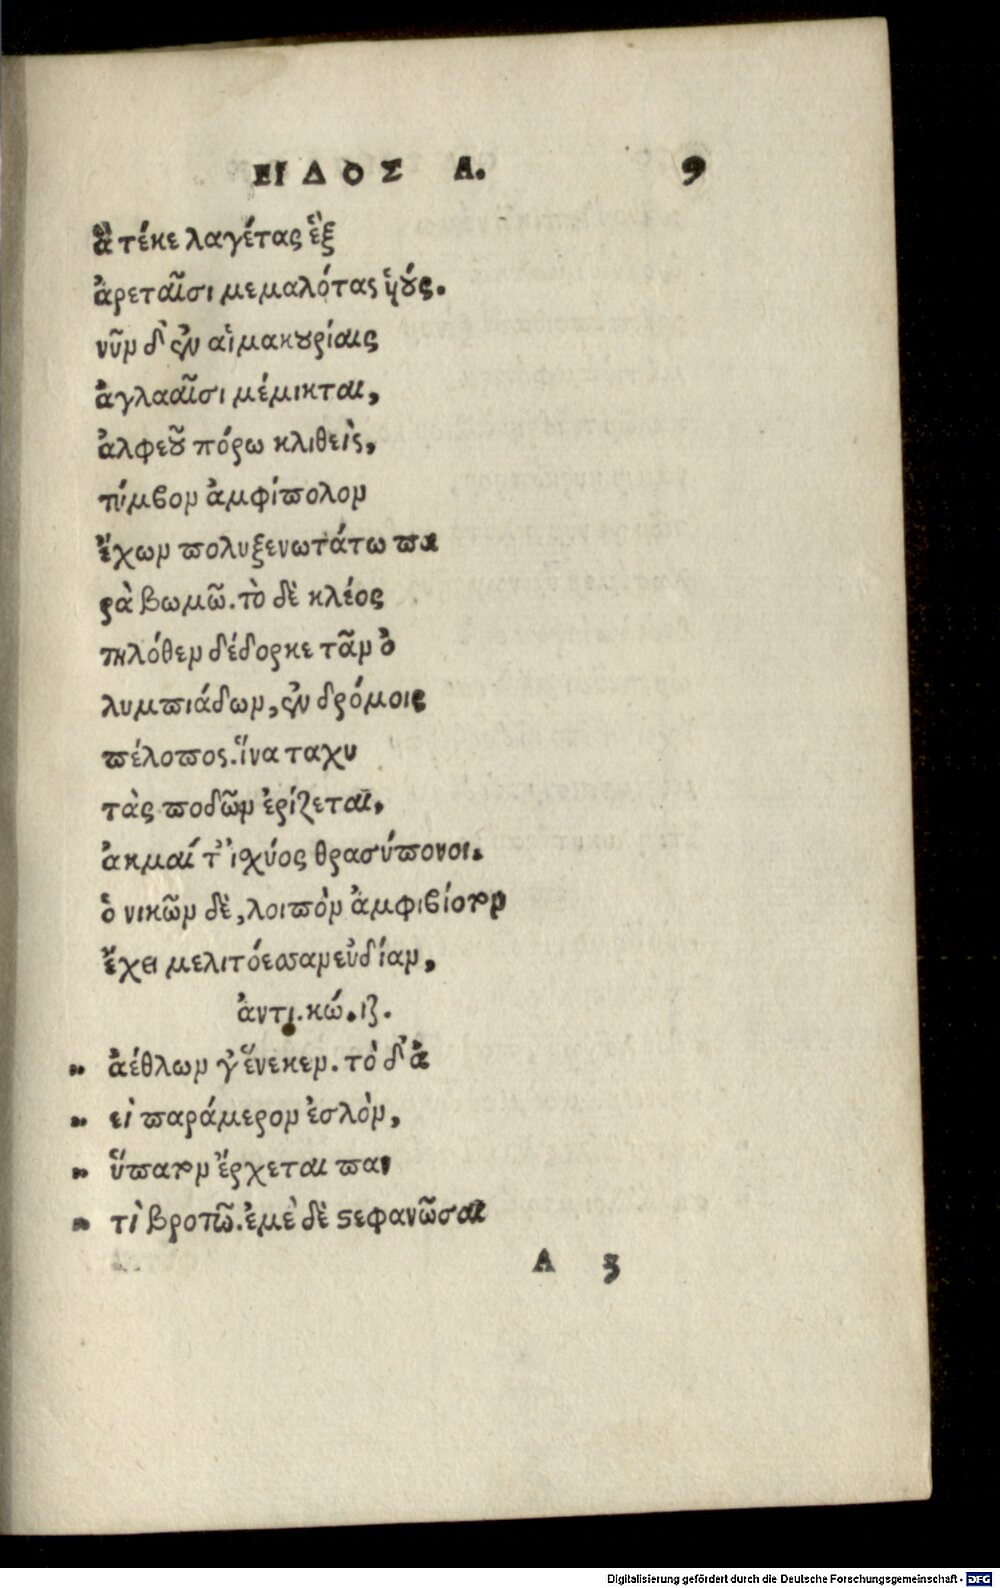 ΕΙΔΟΣ Α. 9
ἃ τέκε λαγέτας ἓξ
ἀρεταῖσι μεμαλότας ὑούς.
νῦν δ' ἐν αἱμακουρίαις
ἀγλααῖσι μέμικται,
ἀλφεοῦ πόρω κλιθεὶς,
τύμβον ἀμφίπολον
ἔχων πολυξενωτάτω πα
ρὰ βωμῶ. τὸ δὲ κλέος
τηλόθεν δέδορκε τᾶν ὀ
λυμπιάδων, ἐν δρόμοις
πέλοπος. ἵνα ταχυ
τὰς ποδῶν ἐρίζεται,
ἀκμαί τ' ἰσχύος θρασύπονοι.
ὁ νικῶν δὲ, λοιπὸν ἀμφιβίοτον
ἔχει μελιτόεσσαν εὐδίαν,
ἀντι. κώ. ιζ.
" ἀέθλων γ' ἕνεκεν. τὸ δ' ἀ
" εὶ παράμερον ἐσλὸν,
" ὕπατον ἔρχεται παν
" τὶ βροτῶ. ἐμὲ δὲ στεφανῶσαι
Α 5
Digitalisierung gefördert durch die Deutsche Forschungsgemeinschaft - DFG